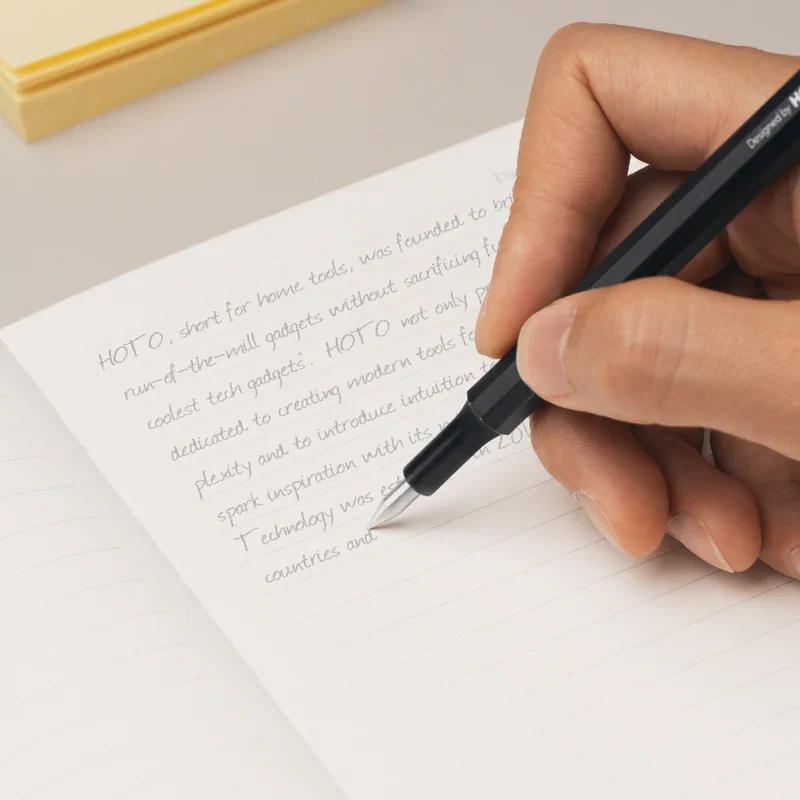 HOTO, short for home tools, was founded to
run-of-the-mill gadgets without sacrificing
coolest tech gadgets. HOTO not only
dedicated to creating modern tools
plexity and to introduce intuition
spark inspiration with its
Technology was
countries and
Designed by